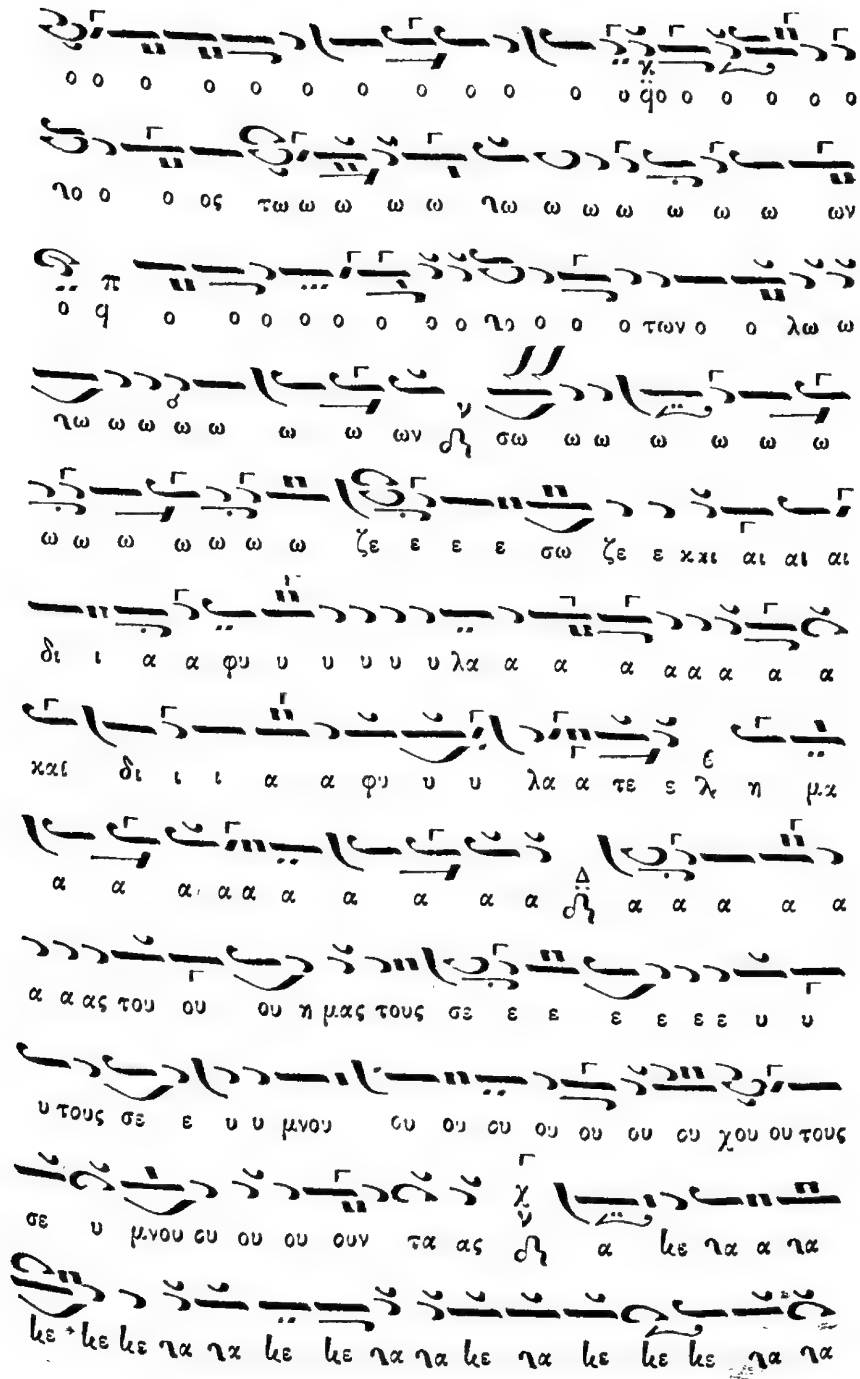 ο ο ο ο ο ο ο ο ο ο ο υ ο ο ο ο ο ο ο
νο ο ο ος τω ω ω ω ω νω ω ω ω ω ω ω ων
ο π ο ο ο ο ο ο ο ο ο νο ο ο ο των ο ο λω ω
νω ω ω ω ω ω ω ων ν σω ω ω ω ω ω ω
ω ω ω ω ω ω ω ζε ε ε ε σω ζε ε και αι αι αι
δι ι α α φυ υ υ υ υ υ λα α α α α α α α α
και δι ι ι α α φυ υ υ λα α τε ε ε λ η μα
α α α α α α α α α α Δ α α α α α
α α ας του ου ου η μας τους σε ε ε ε ε ε ε υ υ
υ τους σε ε υ υ μνου ου ου ου ου ου ου ου χου ου τους
σε υ μνου ου ου ου ουν τα ας χ ν α κε να α να
κε κε κε να να κε κε να να κε να κε κε κε να να